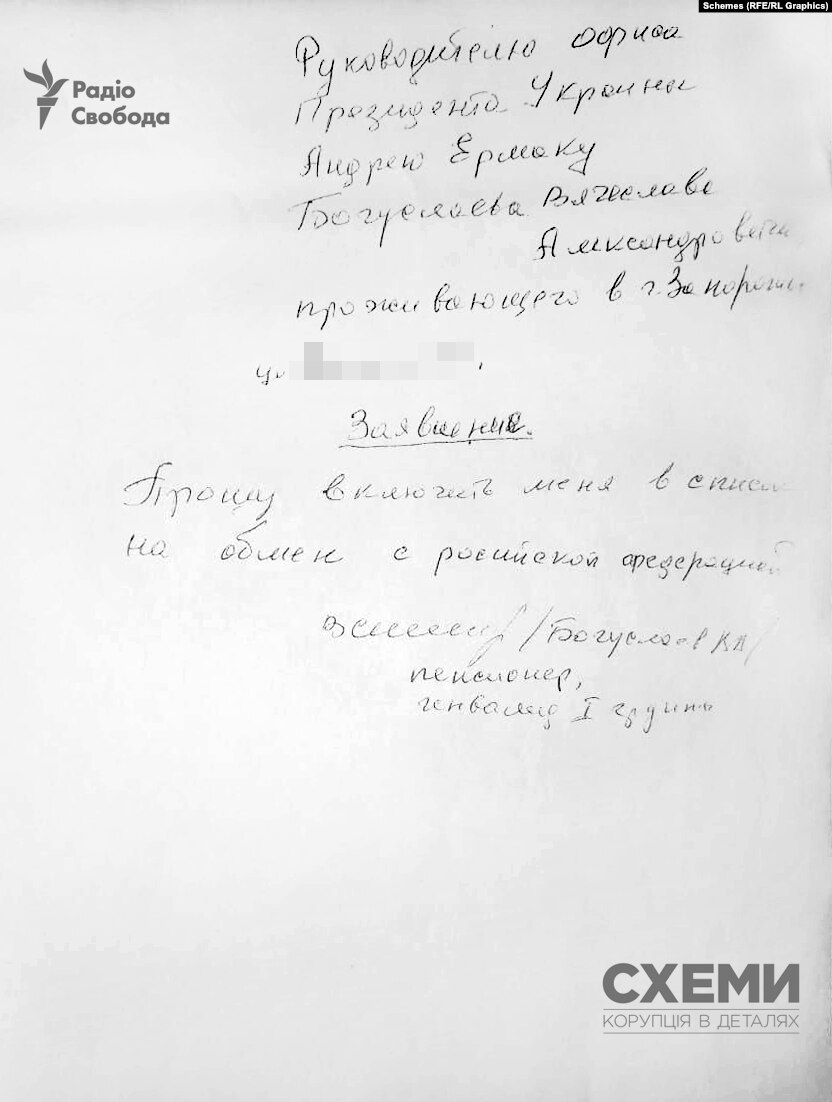 Schemes (RFE/RL Graphics)
Радіо
Свобода
Руководителю офиса
Президента Украины
Андрею Ермаку
Богуслаева Вячеслава
Александровича
проживающего в г. Запорожье
ул.
Заявление.
Прошу включить меня в список
на обмен с росийской федерацией
/Богуслаев ВА/
пенсионер,
инвалид I групы
СХЕМИ
КОРУПЦІЯ В ДЕТАЛЯХ